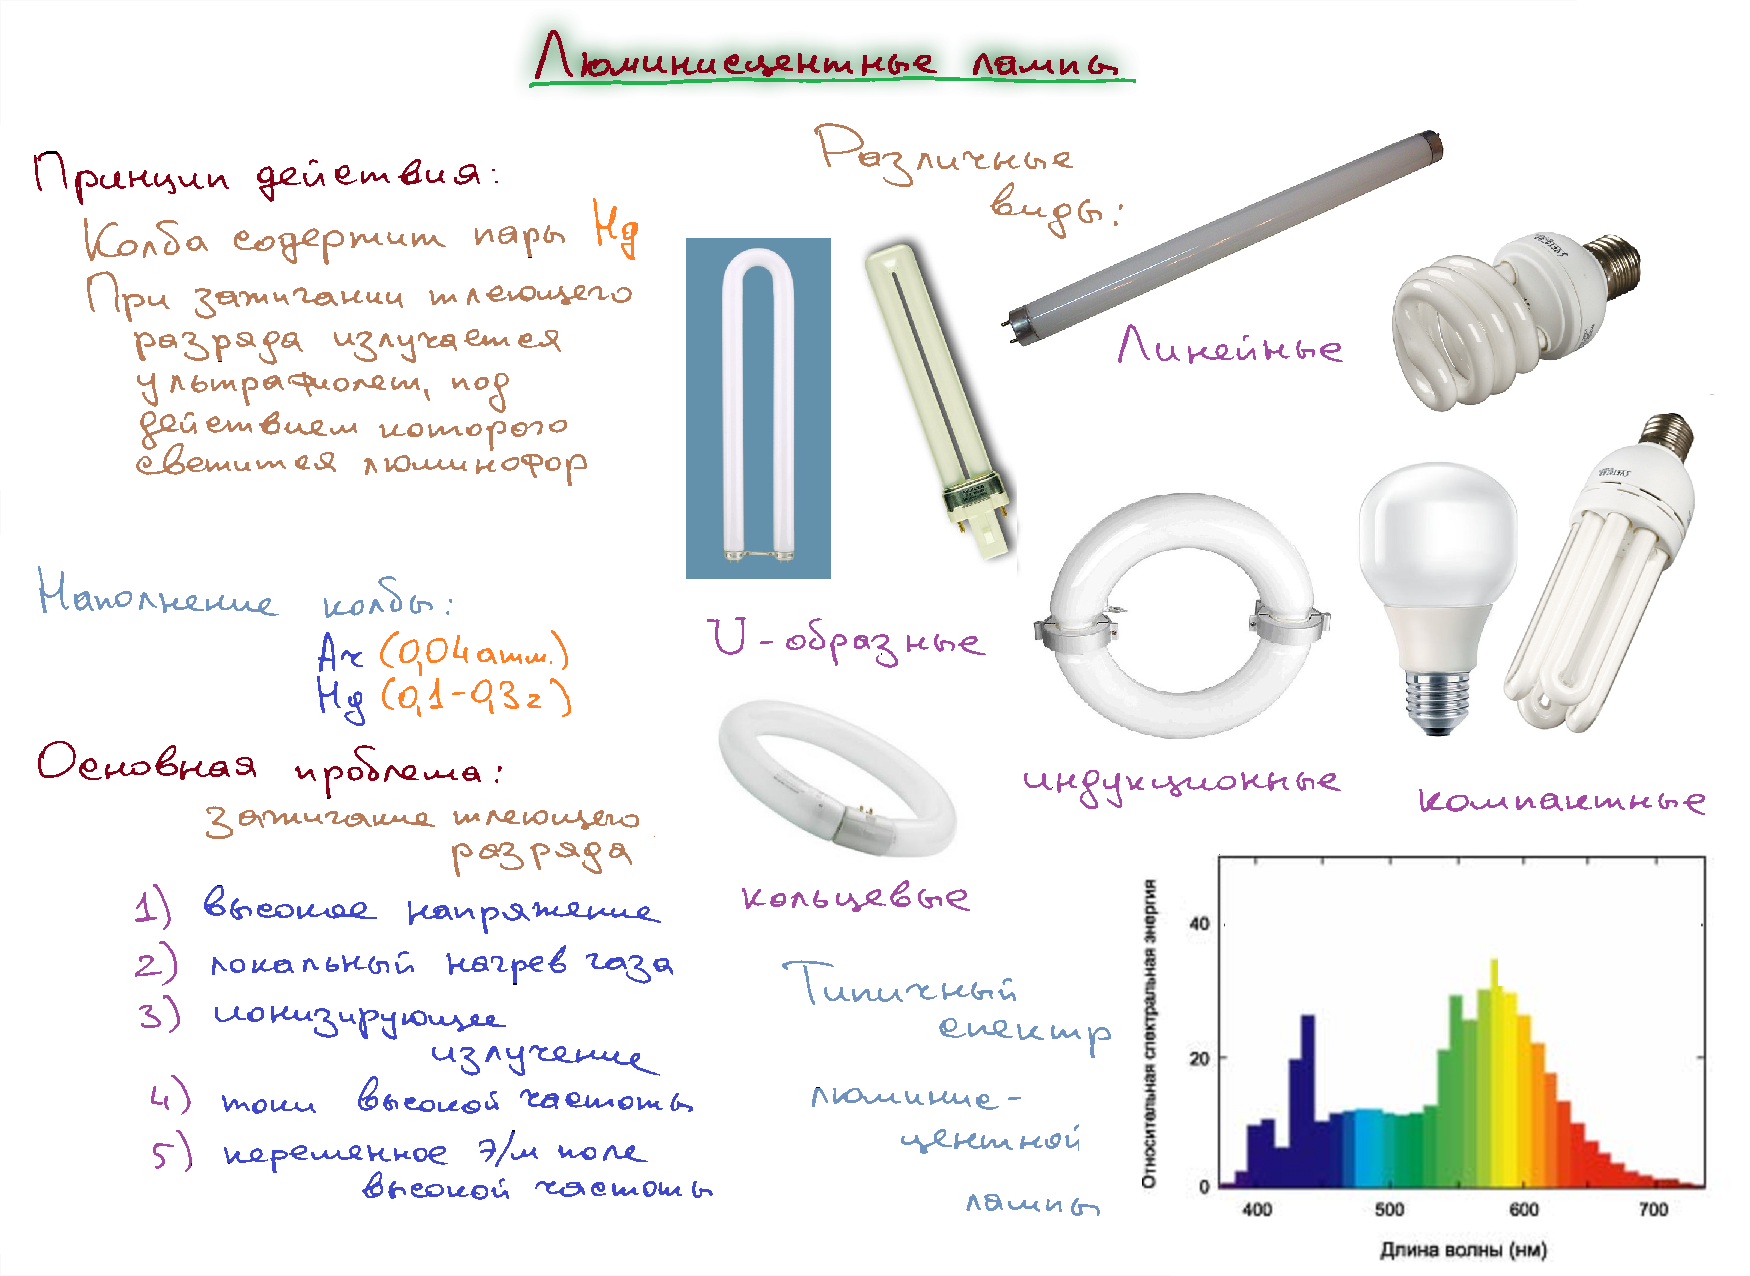 Люминисцентные лампы
Принцип действия:
Колба содержит пары Hg
При зажигании тлеющего
разряда излучается
ультрафиолет, под
действием которого
светится люминофор
Наполнение колбы:
Ar (0,04 атм.)
Hg (0,1-0,3 г)
Основная проблема:
Зажигание тлеющего
разряда
1) высокое напряжение
2) локальный нагрев газа
3) ионизирующее
излучение
4) токи высокой частоты
5) переменное э/м поле
высокой частоты
Различные
виды:
Линейные
U-образные
индукционные
компактные
кольцевые
Типичный
спектр
люминис-
центной
лампы
Относительная спектральная энергия
40
20
0
400 500 600 700
Длина волны (нм)